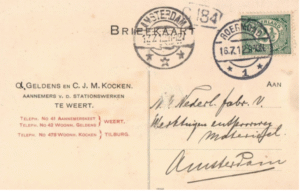 BRIEFKAART
AMSTERDAM
184
ROERMOND
16.7.12
1
GELDENS EN C. J. M. KOCKEN.
AANNEMERS V. D. STATIONSWERKEN
TE WEERT.
TELEPH. No 41 AANNEMERSKEET
TELEPH. No 42 WONING GELDENS
WEERT.
TELEPH. No 429 WONING KOCKEN
TILBURG.
AAN
Nederl. fabr. v.
Werktuigen en spoorweg
Materieel
Amsterdam